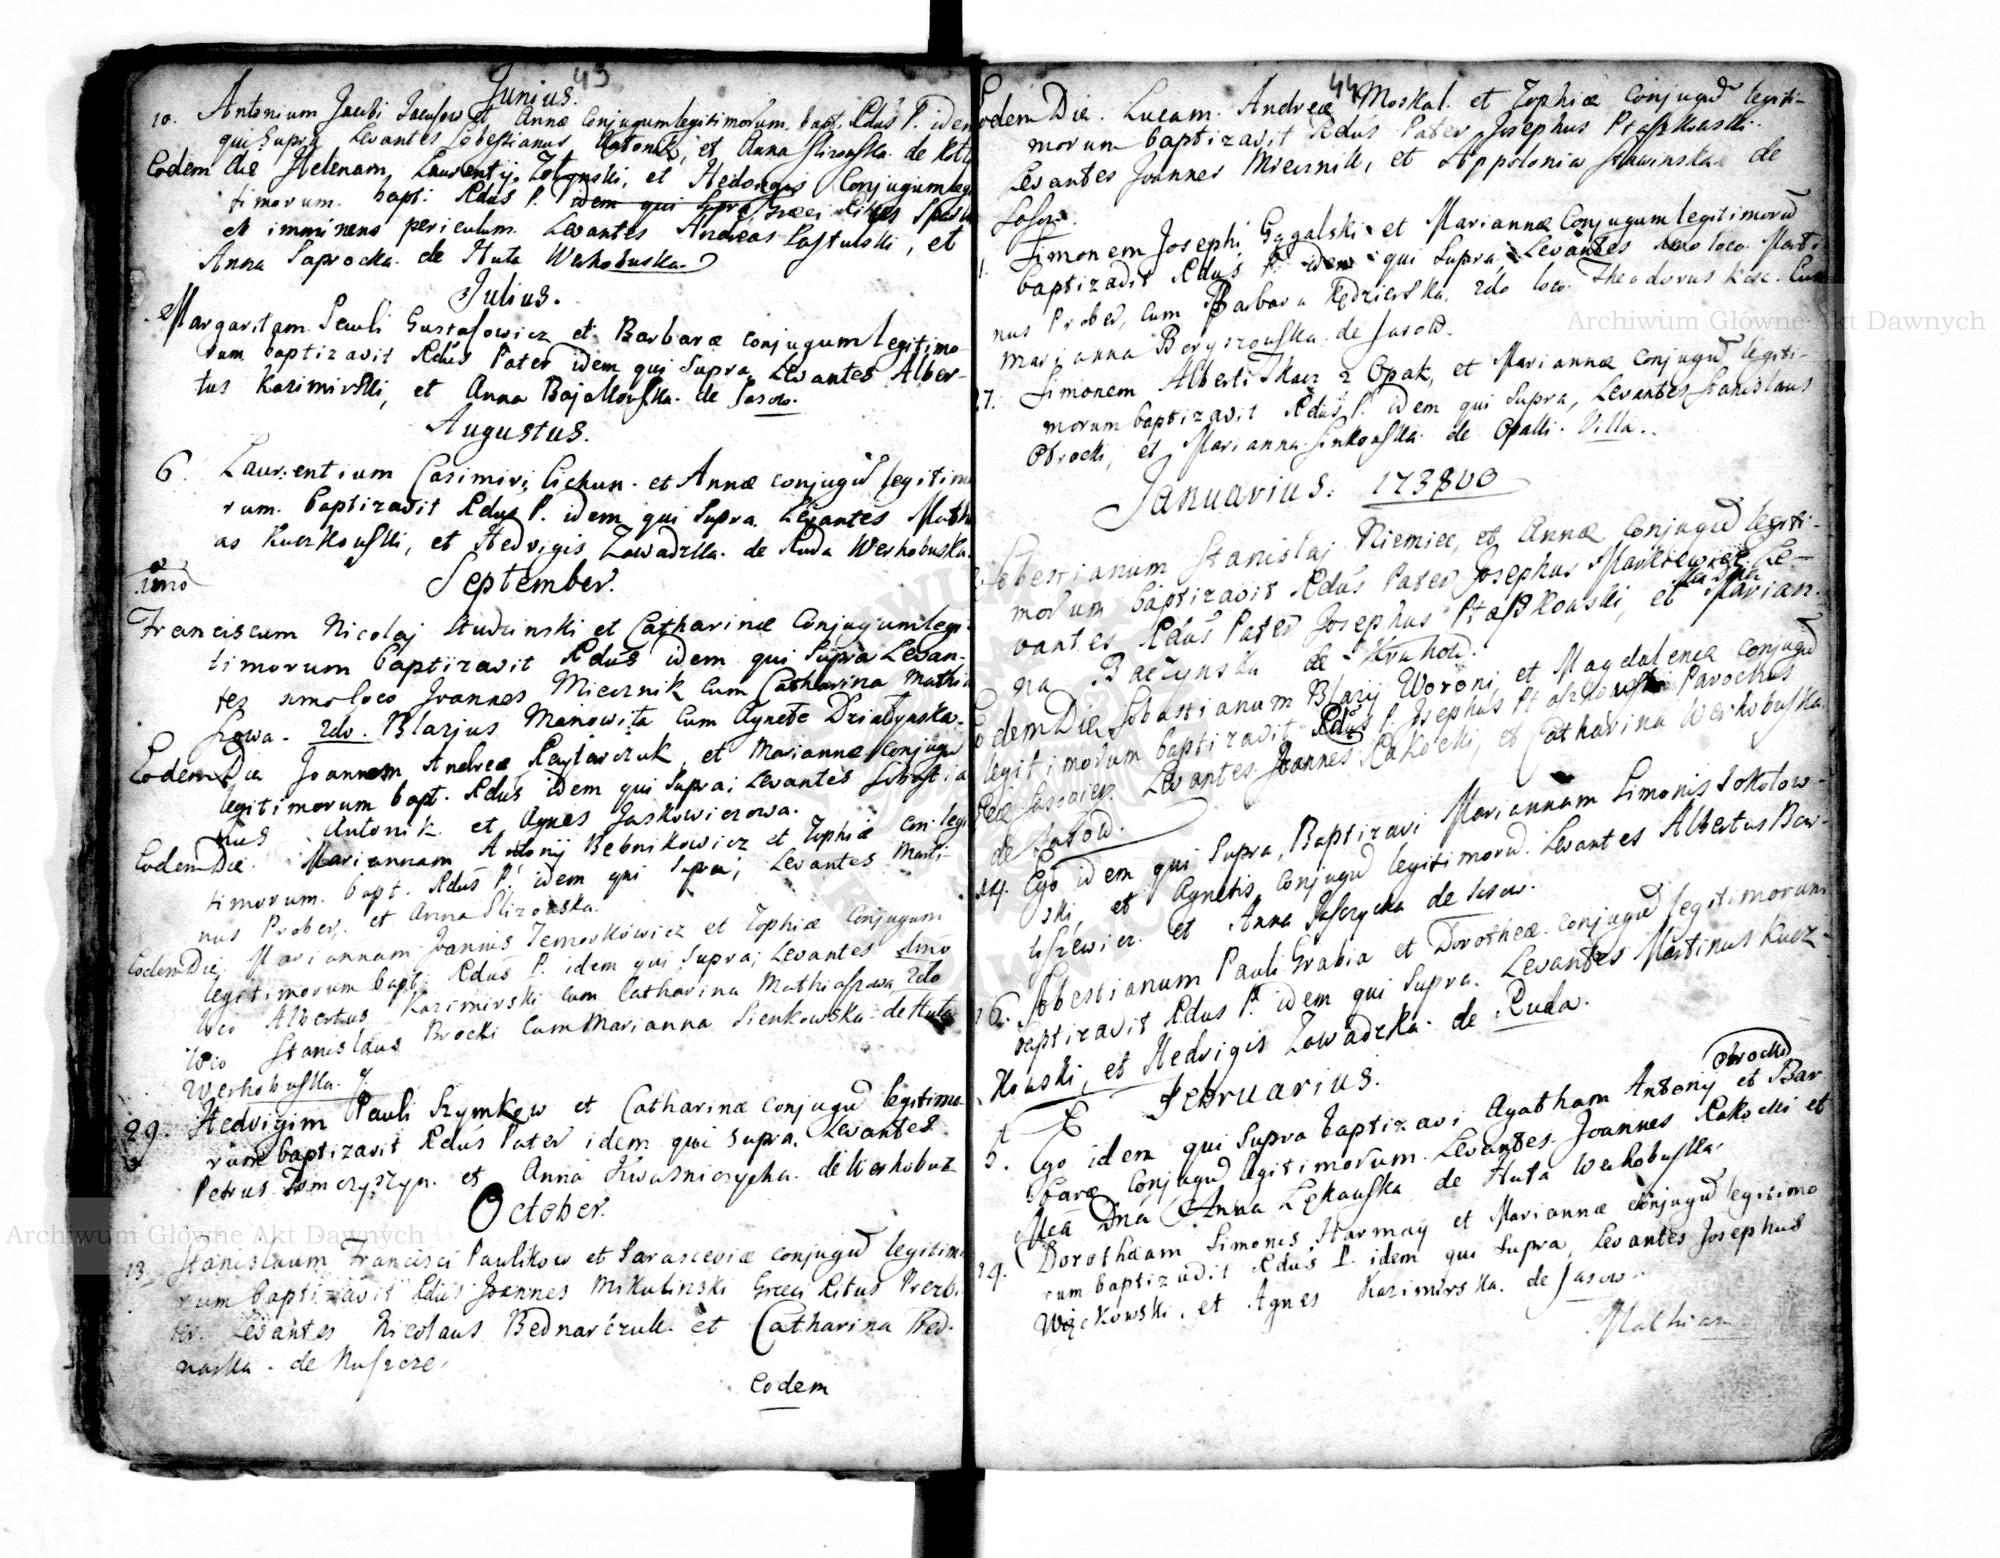 43
Junius.
10. Antonium Jacobi et Annæ Conjugum legitimorum. bapt. Rdus P. idem
qui Supra Levantes Sebestianus Antonik, et Anna Slizoska. de
Eodem die Helenam, Laurentij et Hedvigis Conjugum legi
timorum. bapt: Rdus P. idem qui Supra Græci Ritus
et iminens periculum. Levantes Andreas Pastulski, et
Anna Paprocka. de Huta Werhobuska.
Julius.
Margaritam. Pauli Gustafowicz et Barbaræ conjugum legitimo
rum baptizavit Rdus Pater idem qui Supra Levantes Alber-
tus Kazimirski, et Anna Bajakouska. de Jasow.
Augustus.
6. Laurentium Casimiri Cichun. et Annæ conjugu legitimo
rum. baptizavit Rdus P. idem qui Supra. Levantes Mathi
as Kuczkouski, et Hedvigis Zawadzka. de Ruda Werhobuska.
September.
imo
Franciscum Nicolaj Studzinski et Catharinæ Conjugum legi-
timorum baptizavit Rdus idem qui Supra Levan-
tes imo loco Joannes Miecznik cum Catharina Mathia
szowa. 2do. Blazius Manowita cum Agnete Dzialynska.
Eodem Die Joannem Andreæ Raytarczuk, et Mariannæ conjugu
legitimorum bapt. Rdus idem qui Supra; Levantes Sebestia
nus Antonik et Agnes Jaskowiczowa.
Eodem Die. Mariannam Antonij Bebnikowicz et Zophiæ con. legi
timorum. bapt. Rdus P. idem qui Supra; Levantes Marti-
nus Prober, et Anna Slizouska.
Eodem Die Mariannam Joannis Temorkowicz et Zophiæ Conjugum
legitimorum bapt: Rdus P. idem qui Supra; Levantes imo
loco Albertus Kazimirski cum Catharina Mathiaszowa, 2do
loco Stanislaus Brocki cum Marianna Sienkowska de Huta
Werhobuska.
29. Hedvigim Pauli Szymkow et Catharinæ conjugu legitimo-
rum baptizavit Rdus Pater idem qui supra. Levantes
Petrus et Anna Kwasniczycha. de Werhobuz
October.
13. Stanislaum Francisci Paulikow et Parasceviæ conjugu legitimo
rum baptizavit Rdus Joannes Mikulinski Græci Ritus Prezbi
ter. Levantes Nicolaus Bednarczuk et Catharina Bed-
narka. de
Eodem
44
Eodem Die. Lucam. Andreæ Moskal. et Zophiæ Conjugu legiti-
morum baptizavit Rdus Pater Josephus Ptaszkouski.
Levantes Joannes Miecznik, et Appolonia de
Jasow.
1. Simonem Josephi Gągalski et Mariannæ Conjugum legitimoru
baptizavit Rdus P. idem qui Supra, Levantes imo loco Marti
nus Prober, cum Barbara Kędzierska. 2do loco Theodorus Kosc. cum
Marianna Beryszouska. de Jasow.
27. Simonem Alberti Tkacz z Opak, et Mariannæ conjugu legiti-
morum baptizavit Rdus P. idem qui Supra, Levantes Stanislaus
Obrocki, et Marianna Sinkouska de Opalki Villa.
Januarius. 173800
Sebestianum Stanislaj Niemiec, et Annæ Conjugu legiti-
morum baptizavit Rdus Pater Josephus Markiewicz Le-
vantes Rdus Pater Josephus Ptaszkouski, et Marian
na Baczynska de Kruhow.
Eodem Die Sobastianum Blazij Woroni, et Magdalenæ conjugu
legitimorum baptizavit Rdus P. Josephus Ptaszkouski Parochus
Levantes Joannes Rakocki, et Catharina Werhobuska
de Jasow.
14. Ego idem qui Supra, Baptizavi Mariannam Simonis Sokolow-
ski, et Agnetis conjugu legitimoru. Levantes Albertus Bar-
et Anna de Jasow.
16. Sobestianum Pauli Grabia et Dorotheæ conjugu legitimorum
baptizavit Rdus P. idem qui Supra. Levantes Martinus Kucz-
kouski, et Hedvigis Zawadzka de Ruda.
Februarius.
5. Ego idem qui Supra baptizavi Agatham Antonij Obrocki et Bar
baræ Conjugu legitimorum. Levantes Joannes Rakocki et
Anna Lękauska de Huta Werhobuska.
19. Dorotheam Simonis Harmay et Mariannæ conjugu legitimo
rum baptizavit Rdus P. idem qui Supra, Levantes Josephus
Węckowski, et Agnes Kazimirska. de Jasow.
Mathiam
Archiwum Główne Akt Dawnych
Archiwum Główne Akt Dawnych